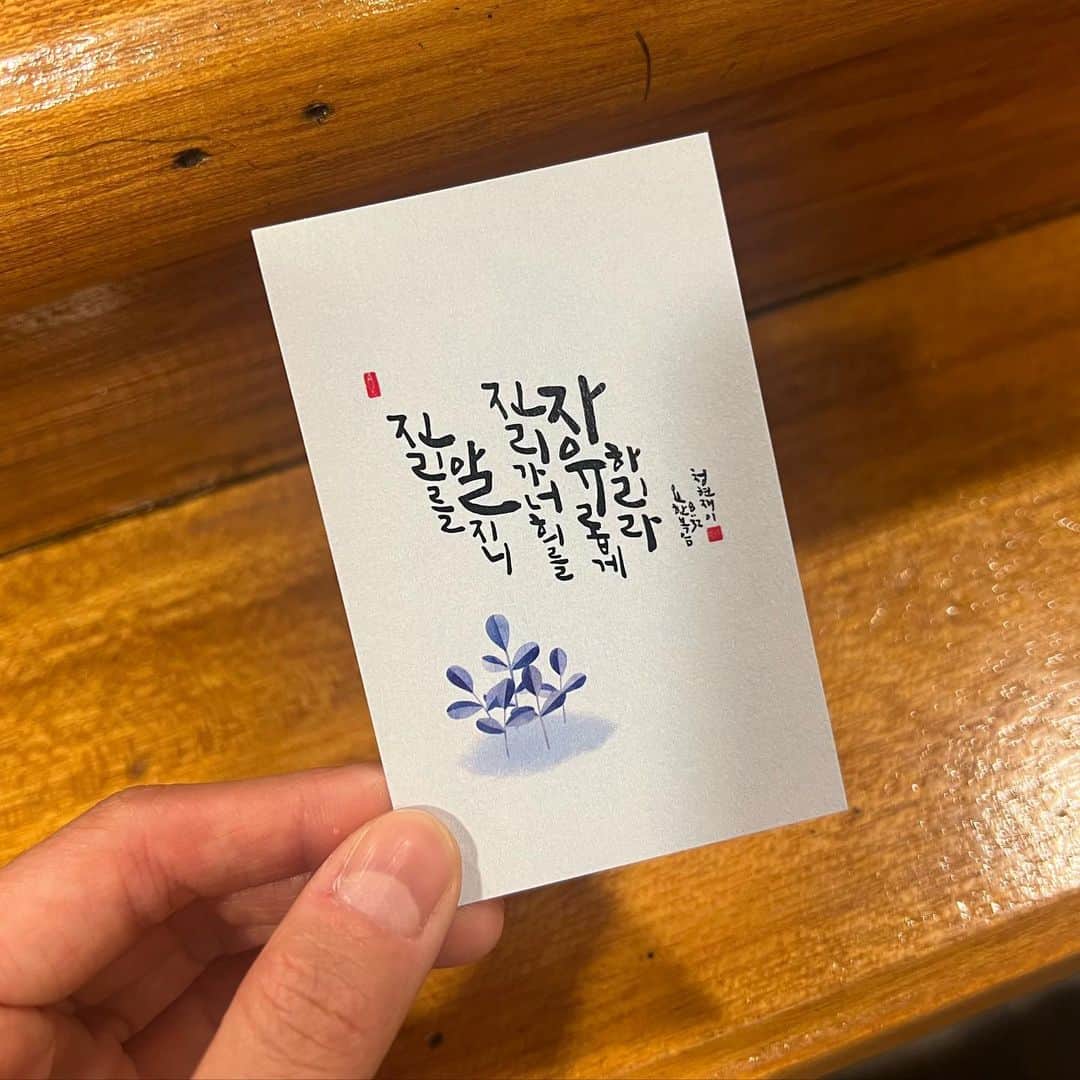 진리를
알지니
진리가 너희를
자유롭게
하리라
요한복음
8:32
청현재이